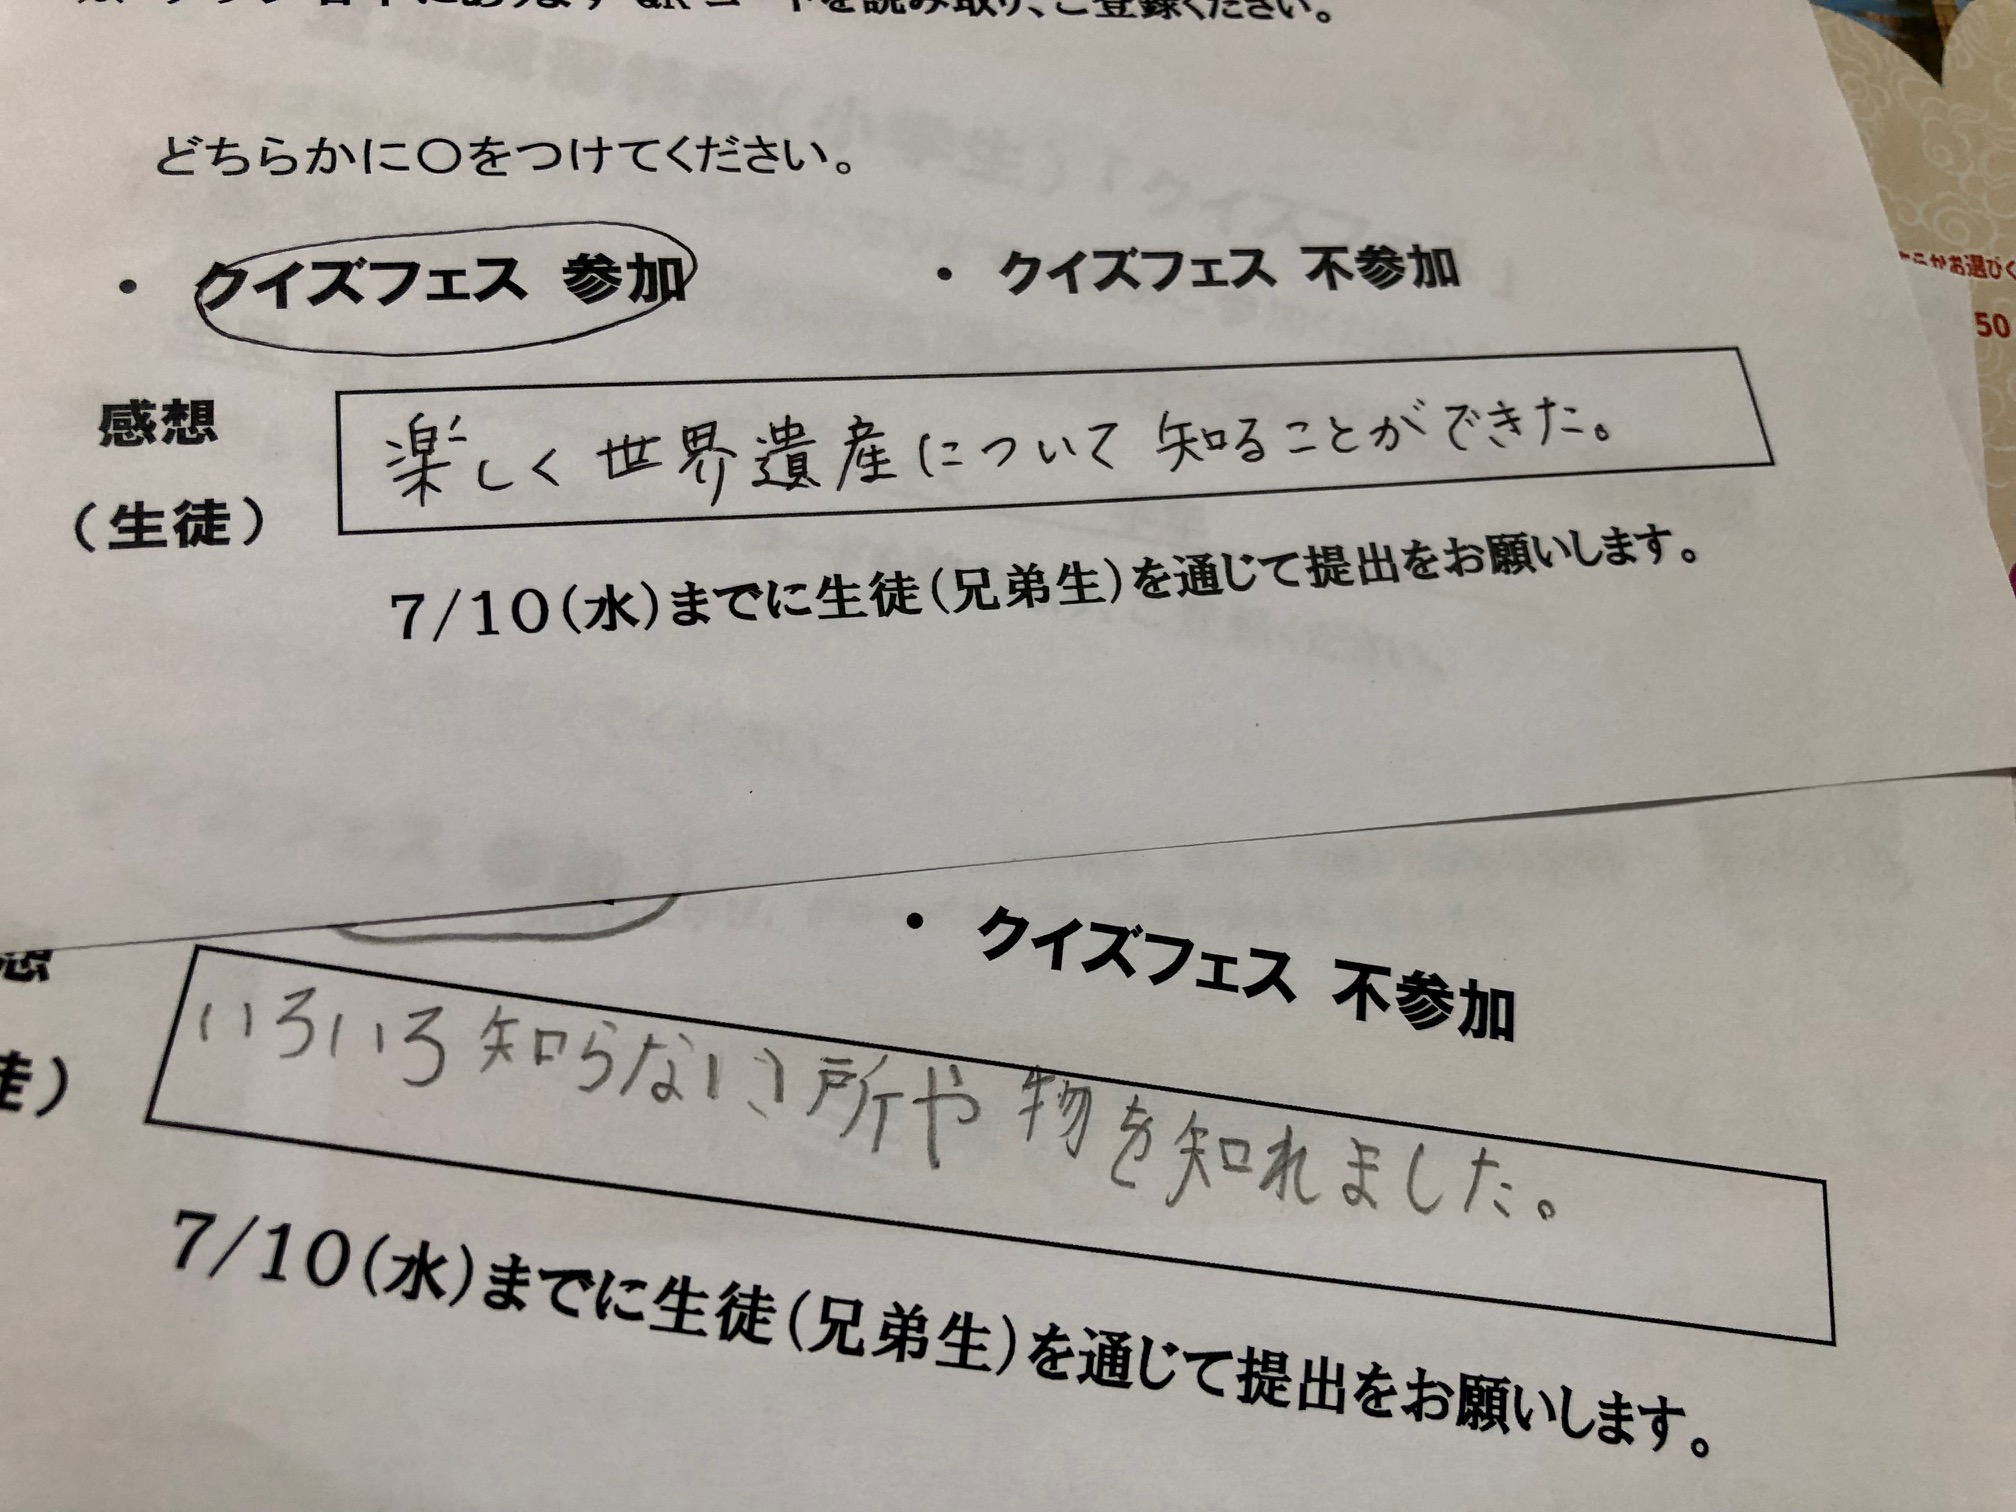 を読み取り、ご登録ください。
どちらかに〇をつけてください。
・ クイズフェス 参加 ・ クイズフェス 不参加
感想
(生徒)
楽しく世界遺産について知ることができた。
7/10(水)までに生徒(兄弟生)を通じて提出をお願いします。
お選びく
50
・ クイズフェス 不参加
想
徒)
いろいろ知らない所や物を知れました。
7/10(水)までに生徒(兄弟生)を通じて提出をお願いします。